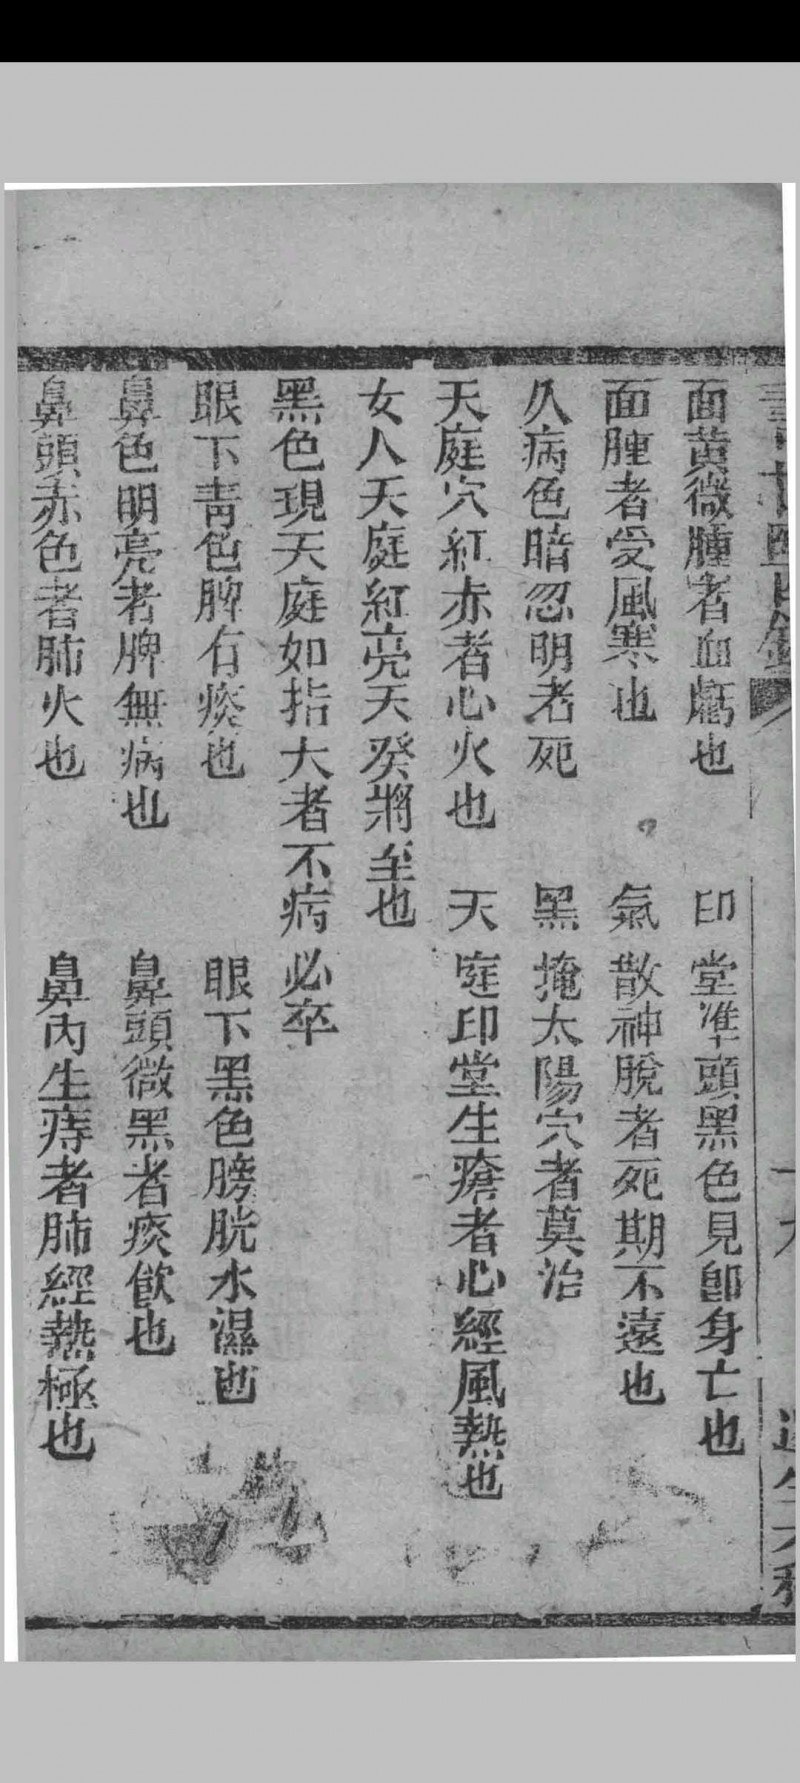 面黃微腫者血虧也　印堂準頭黑色見卽身亡也
面腫者受風寒也　氣散神脫者死期不遠也
久病色暗忽明者死　黑掩太陽穴者莫治
天庭穴紅赤者心火也　天庭印堂生瘡者心經風熱也
女人天庭紅亮天癸將至也
黑色現天庭如指大者不病必卒
眼下青色脾有痰也　眼下黑色膀胱水濕也
鼻色明亮者脾無病也　鼻頭微黑者痰飲也
鼻頭赤色者肺火也　鼻內生痔者肺經熱極也